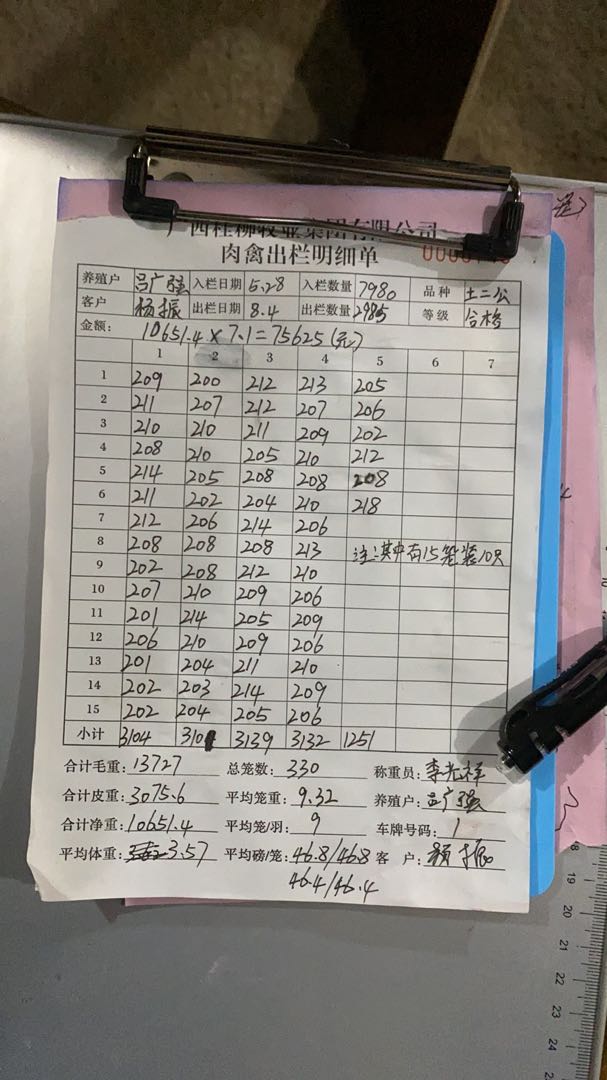 广西桂柳牧业集团有限公司
肉禽出栏明细单
养殖户 吕广强 入栏日期 5.28 入栏数量 7980 品种 土二公
客户 杨振 出栏日期 8.4 出栏数量 2985 等级 合格
金额: 10651.4×7.1=75625(元)
1 2 3 4 5 6 7
1 209 200 212 213 205
2 211 207 212 207 206
3 210 210 211 209 202
4 208 210 205 210 212
5 214 205 208 208 208
6 211 202 204 210 218
7 212 206 214 206
8 208 208 208 213 注:其中有15笼装10只
9 202 208 212 210
10 207 210 209 206
11 201 214 205 209
12 206 210 209 206
13 201 204 211 210
14 202 203 214 209
15 202 204 205 206
小计 3104 3101 3139 3132 1251
合计毛重: 13727 总笼数: 330 称重员: 李光祥
合计皮重: 3075.6 平均笼重: 9.32 养殖户: 吕广强
合计净重: 10651.4 平均笼/羽: 9 车牌号码: 1
平均体重: 3.57 平均磅/笼: 46.8/46.8 客户:
46.4/46.4
18
19
20
21
22
23
24